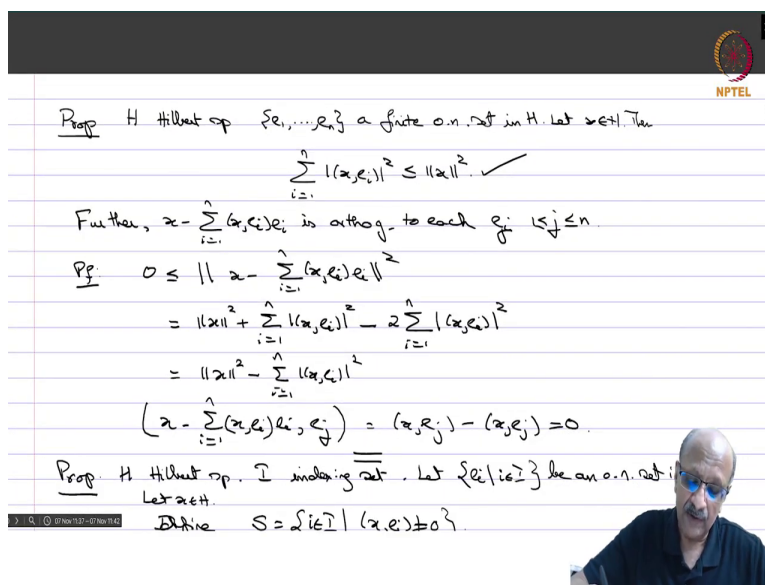 NPTEL
Prop H Hilbert sp {e₁,...,eₙ} a finite o.n. set in H. Let x∈H. Then
\sum_{i=1}^{n} |(x,e_i)|^2 ≤ ||x||^2. ✓
Further, x - \sum_{i=1}^{n} (x,e_i)e_i is orthog. to each e_j 1≤j≤n.
Pf: 0 ≤ || x - \sum_{i=1}^{n} (x,e_i)e_i ||^2
= ||x||^2 + \sum_{i=1}^{n} |(x,e_i)|^2 - 2 \sum_{i=1}^{n} |(x,e_i)|^2
= ||x||^2 - \sum_{i=1}^{n} |(x,e_i)|^2
(x - \sum_{i=1}^{n} (x,e_i)e_i, e_j) = (x,e_j) - (x,e_j) = 0.
Prop. H Hilbert sp. I indexing set. Let {e_i | i∈I} be an o.n. set i
Let x∈H.
Define S = {i∈I | (x,e_i) ≠ 0}.
07 Nov 11:37 – 07 Nov 11:42